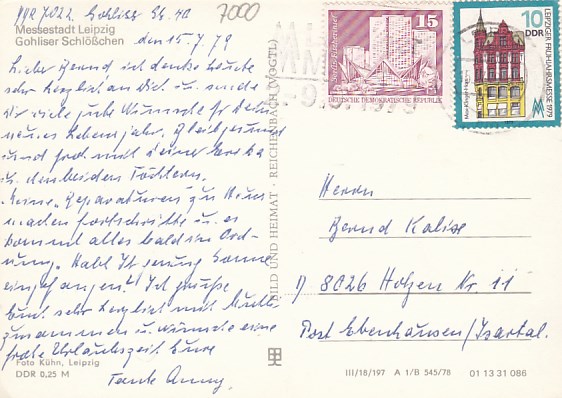 7022 Gohliser Str. 40
7000
Messestadt Leipzig
Gohliser Schlößchen
den 15.7.79
Liebe Bernd ich denke heute
sehr herzlich an Dich u. sende
Dir viele gute Wünsche für Dein
neues Lebensjahr. Bleib gesund
und froh mit Deiner
u. den beiden Töchtern.
Meine "Reparaturen" zu Haus
machen Fortschritte u. es
kommt alles bald in Ord-
nung. Habt Ihr genug Sonne
eingefangen? Ich grüße
Euch sehr herzlich mit Mutti
zusammen u. wünsche eine
frohe Urlaubszeit. Eure
Tante Anny.
Foto Kühn, Leipzig
DDR 0,25 M
BILD UND HEIMAT · REICHENBACH (VOGTL)
15
DEUTSCHE DEMOKRATISCHE REPUBLIK
10
DDR
LEIPZIGER FRÜHJAHRSMESSE 1979
Herrn
Bernd Kalixe
D 8026 Holzen Nr 11
Post Ebenhausen/Isartal.
III/18/197 A 1/B 545/78 01 13 31 086